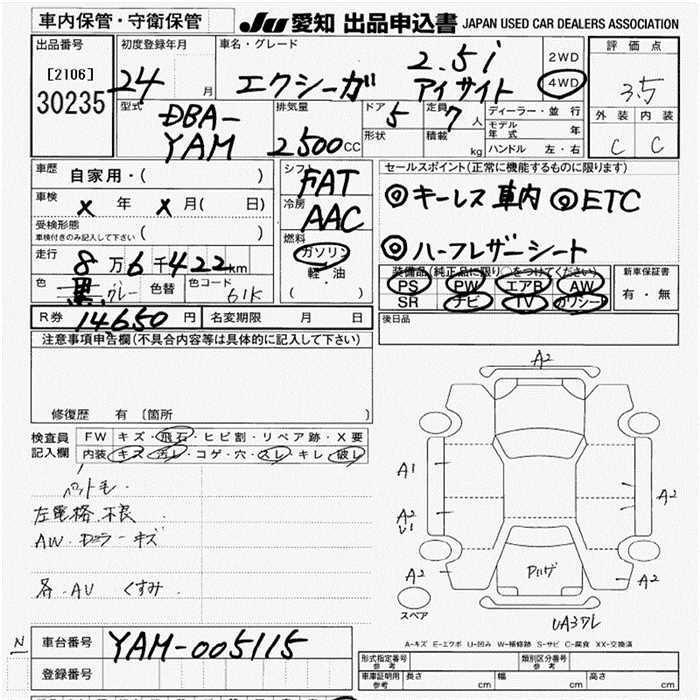 車内保管・守衛保管
JU 愛知 出品申込書 JAPAN USED CAR DEALERS ASSOCIATION
出品番号
[2106]
30235
初度登録年月
24 月
車名・グレード
エクシーガ 2.5i アイサイト
2WD
4WD
評価点
3.5
外装 内装
C C
型式
DBA-YAM
排気量
2500CC
ドア 5
形状
定員 7人
積載 kg
ディーラー・並行
モデル年式 年
ハンドル 左・右
車歴
自家用・( )
車検
× 年 × 月( 日)
受検形態
車検付きのみ記入して下さい ( )
走行
8万6千422km
色 黒 グレー 色替 色コード 61K
シフト
FAT
冷房
AAC
燃料
ガソリン
軽・油
( )
セールスポイント(正常に機能するものに限ります)
◎キーレス 車内◎ETC
◎ハーフレザーシート
装備品(純正品に限り○をつけてください)
PS PW エアB AW
SR ナビ TV カワシート
新車保証書
有・無
R券 14,650円 名変期限 月 日
後日品
注意事項申告欄(不具合内容等は具体的に記入して下さい)
修復歴 有 〔箇所 〕
検査員記入欄
FW キズ・飛石・ヒビ割・リペア跡・X要
内装 キズ・汚レ・コゲ・穴・スレ・キレ・破レ
ペット毛.
左電格 不良
AW キズ
各.AV くすみ.
A2
A1
A2
A2
U1
A2
A2
スペア
A-キズ E-エクボ U-凹み W-補修跡 S-サビ C-腐食 XX-交換済
N
車台番号 YAM-005115
登録番号
形式指定番号 参考
類別区分番号 参考
車庫証明用 参考 長さ cm 幅 cm 高さ cm